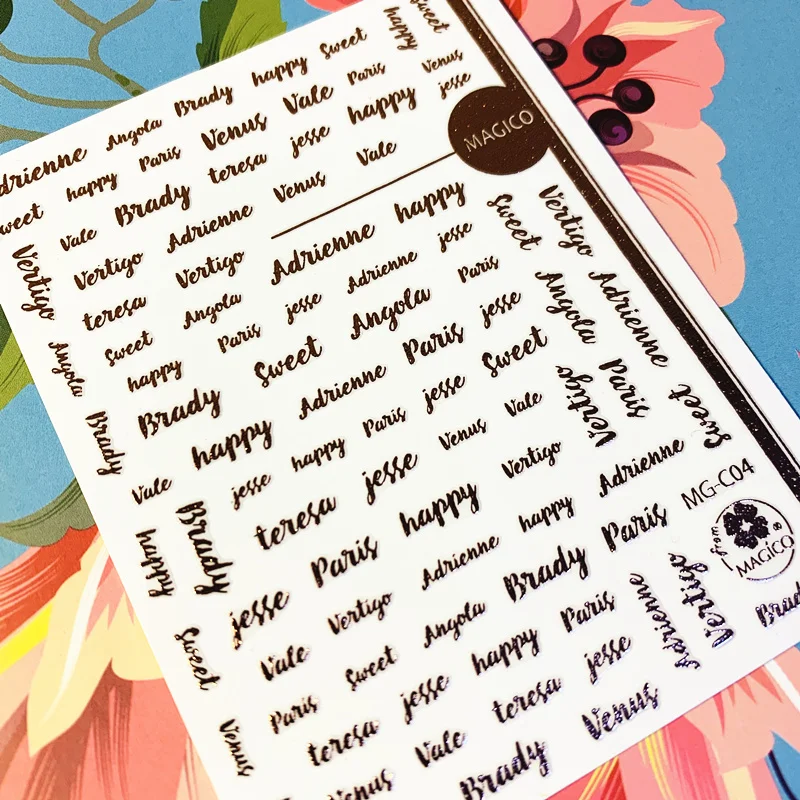 Sweet
happy
Adrienne Angola Brady happy Sweet
Sweet happy Paris Venus Vale Paris Venus
Vale Brady teresa jesse happy jesse
MAGICO
Vertigo Vertigo Adrienne Venus Vale
teresa Vertigo Adrienne happy Sweet Vertigo
Angola Sweet Angola jesse Adrienne jesse
happy Paris Sweet Angola Paris Angola Adrienne
Brady Brady Adrienne Paris jesse
Vale happy Paris jesse Sweet Vertigo Paris
jesse happy Venus Vale Sweet
happy Brady teresa jesse Vertigo Adrienne
MG-C04
Paris happy happy Paris
from MAGiCO ®
Sweet jesse Vertigo Adrienne Brady Vertigo Brady
Vale Sweet Angola Paris Adrienne
Venus Paris jesse happy jesse
teresa Vale teresa Venus
Venus Brady